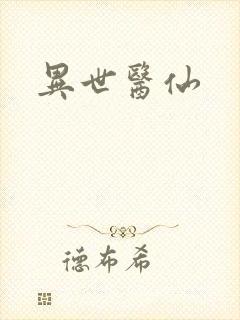 異世醫仙
德布希